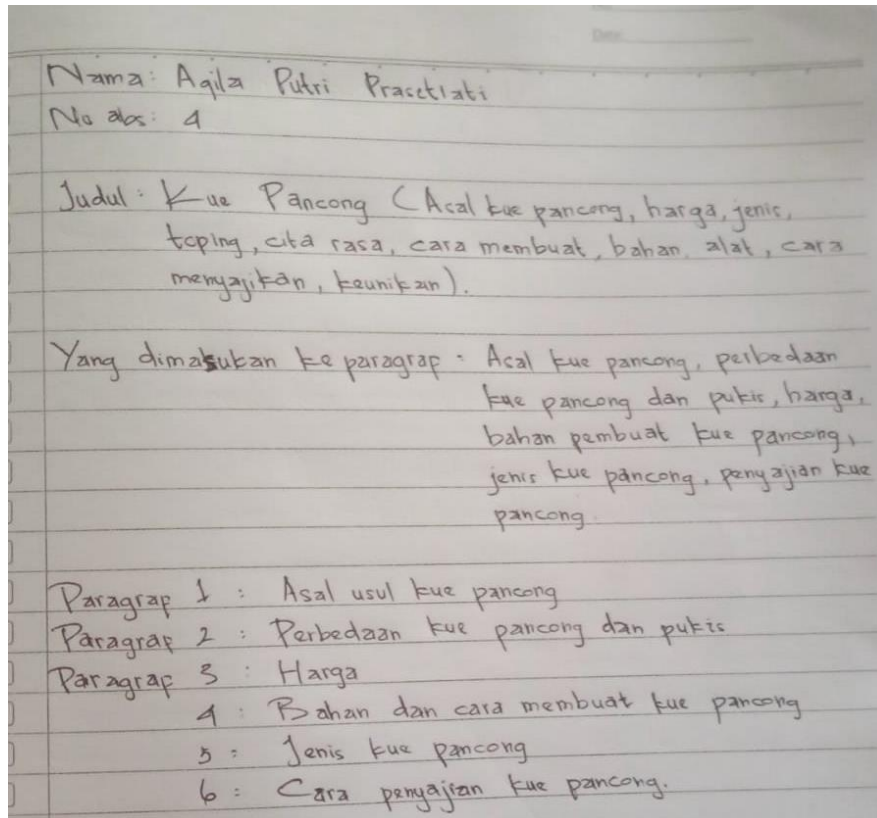 Date:
Nama: Aqila Putri Prasetiati
No abs: 4
Judul: Kue Pancong (Asal kue pancong, harga, jenis,
toping, cita rasa, cara membuat, bahan, alat, cara
menyajikan, keunikan).
Yang dimasukan ke paragrap: Asal kue pancong, perbedaan
kue pancong dan pukis, harga,
bahan pembuat kue pancong,
jenis kue pancong, penyajian kue
pancong.
Paragrap 1 : Asal usul kue pancong
Paragrap 2 : Perbedaan kue pancong dan pukis
Paragrap 3 : Harga
4 : Bahan dan cara membuat kue pancong
5 : Jenis kue pancong
6 : Cara penyajian kue pancong.